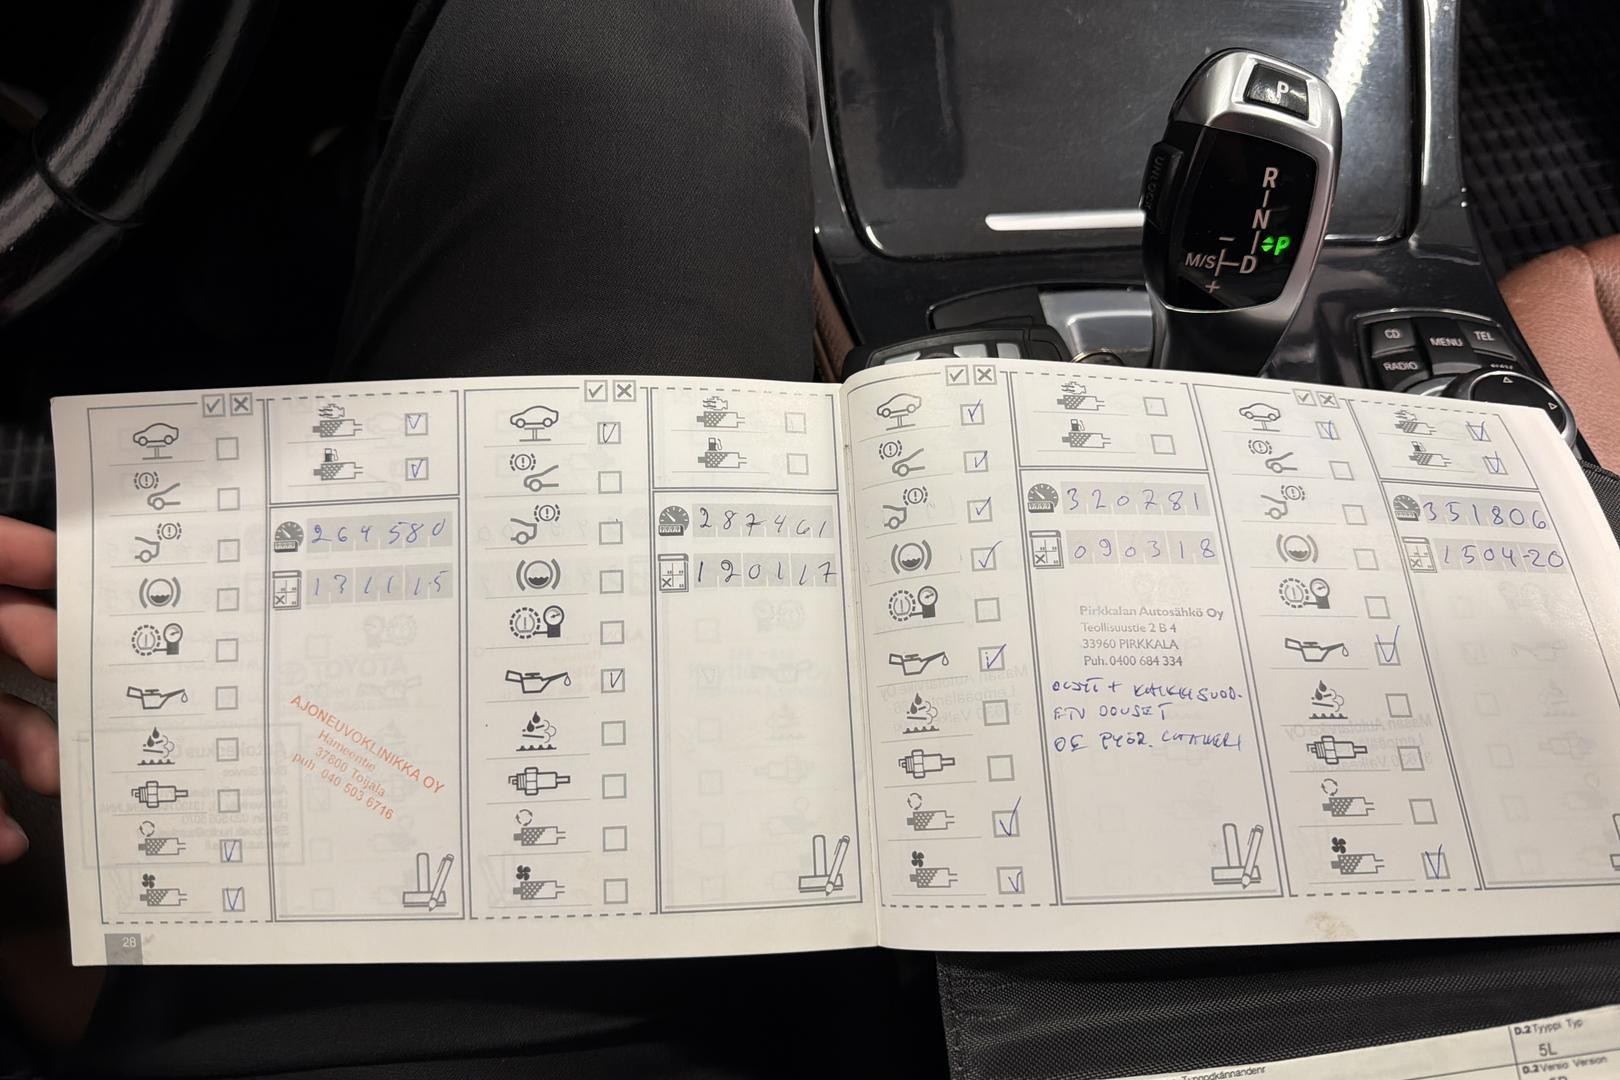 P
R
N
P
M/S
D
UNLOCK
CD
MENU
TEL
RADIO
264580
131115
AJONEUVOKLINIKKA OY
Hämeentie
37800 Toijala
puh. 040 503 6716
28
287461
120117
320781
090318
Pirkkalan Autosähkö Oy
Teollisuustie 2 B 4
33960 PIRKKALA
Puh. 0400 684 334
351806
150420
D.2 Tyyppi Typ
5L
D.2 Versio Version